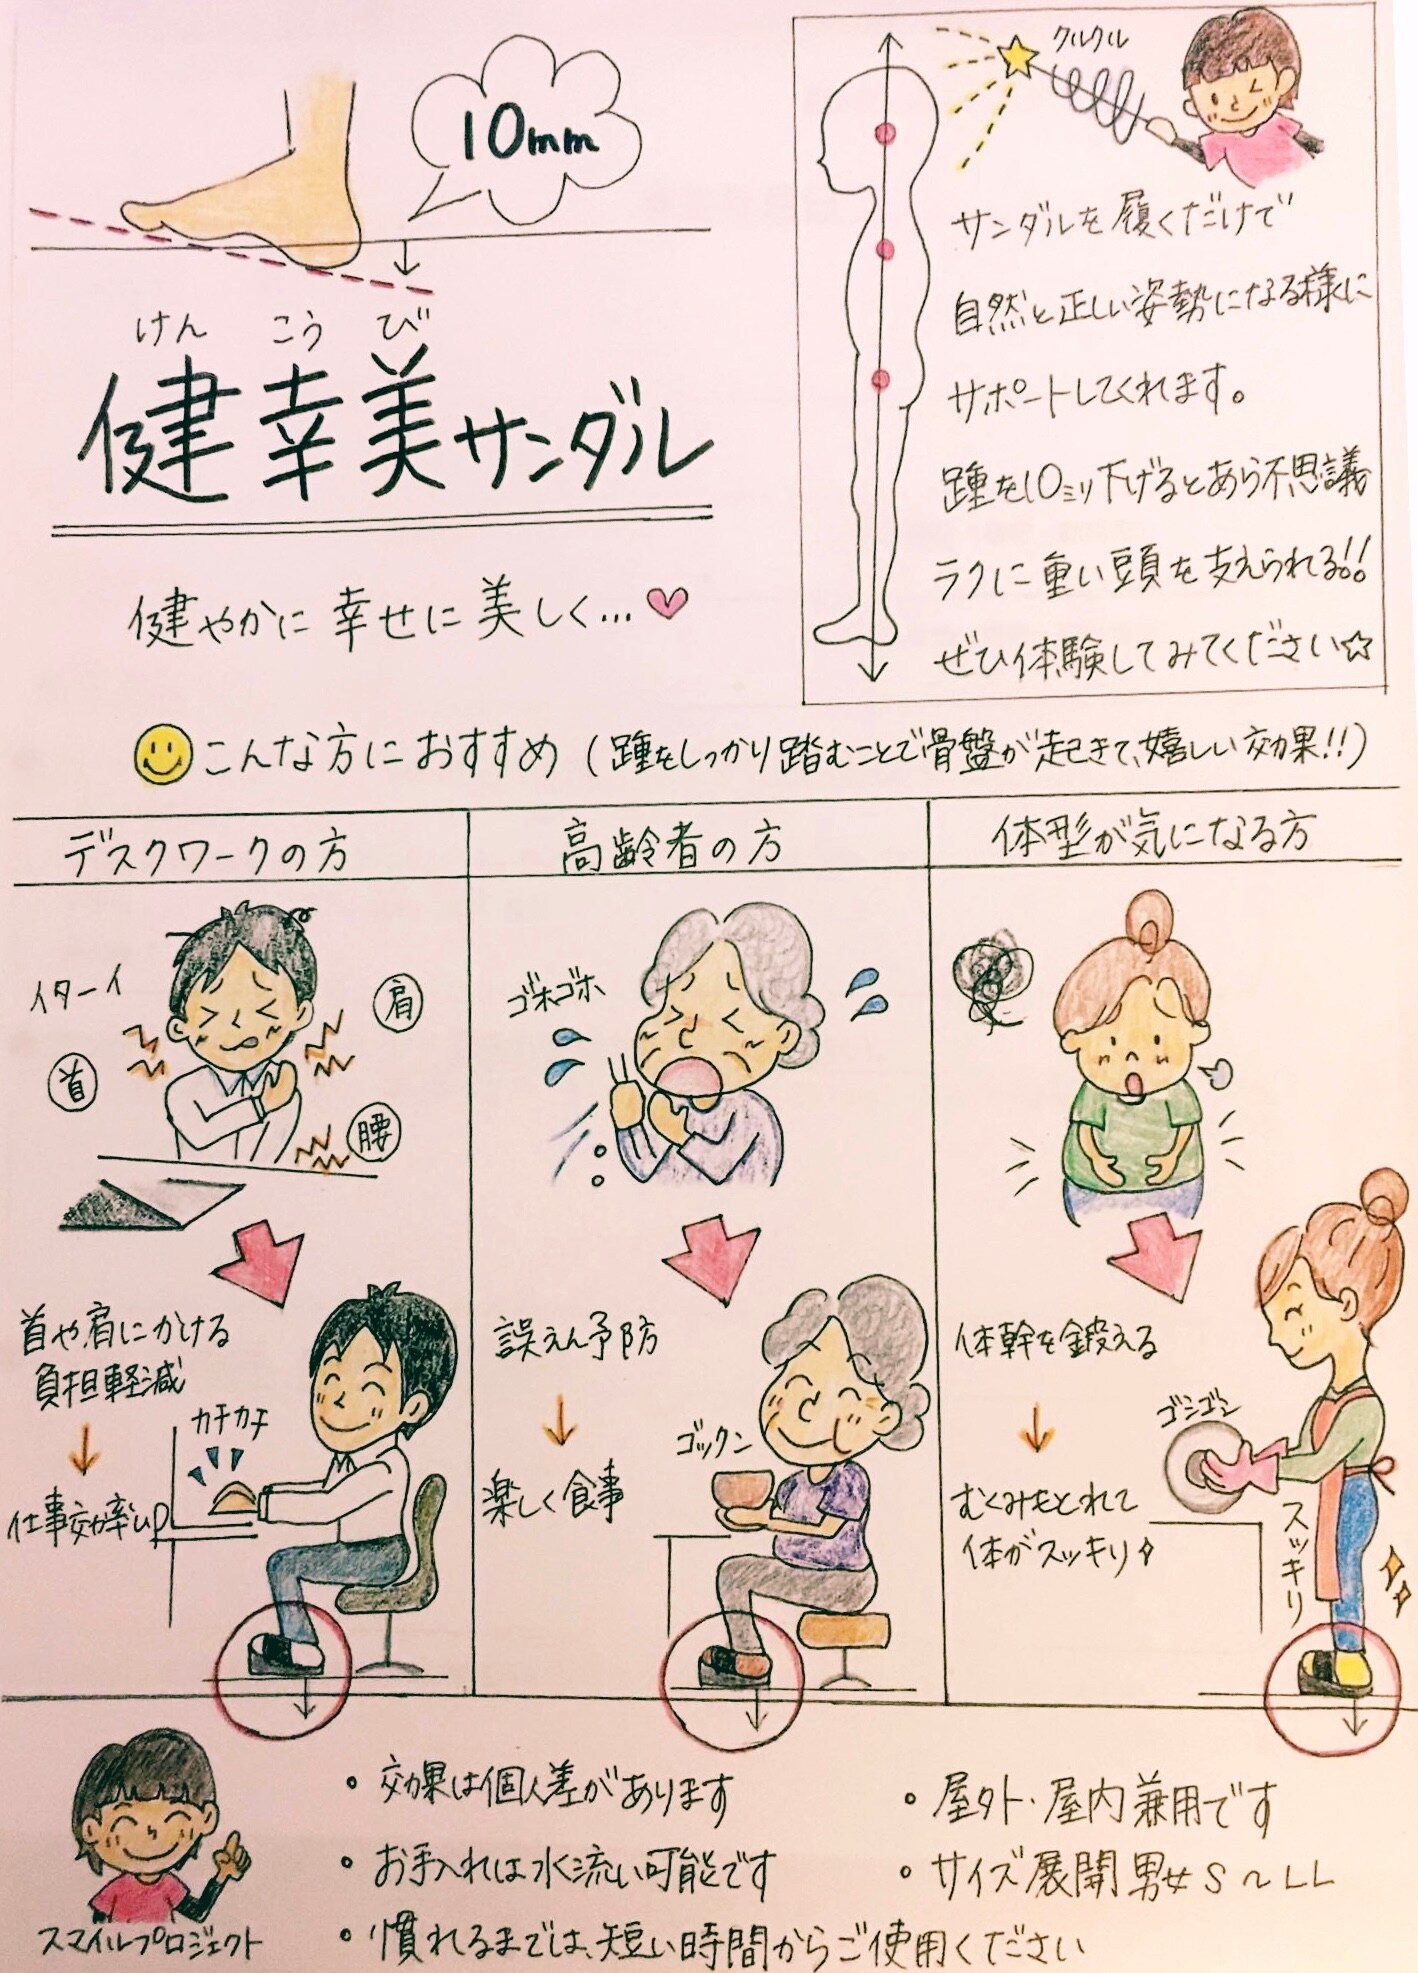 10mm
けん こう び
健幸美サンダル
健やかに幸せに美しく…
クルクル
サンダルを履くだけで
自然と正しい姿勢になる様に
サポートしてくれます。
踵を10ミリ下げるとあら不思議
ラクに重い頭を支えられる!!
ぜひ体験してみてください☆
こんな方におすすめ(踵をしっかり踏むことで骨盤が起きて、嬉しい効果!!)
デスクワークの方
イターイ
肩
首
腰
首や肩にかける
負担軽減
カチカチ
仕事効率up
高齢者の方
ゴホゴホ
誤えん予防
ゴックン
楽しく食事
体型が気になる方
体幹を鍛える
ゴシゴシ
むくみもとれて
体がスッキリ
スッキリ
スマイルプロジェクト
・効果は個人差があります
・お手入れは水流い可能です
・慣れるまでは、短い時間からご使用ください
・屋外・屋内兼用です
・サイズ展開 男女S〜LL